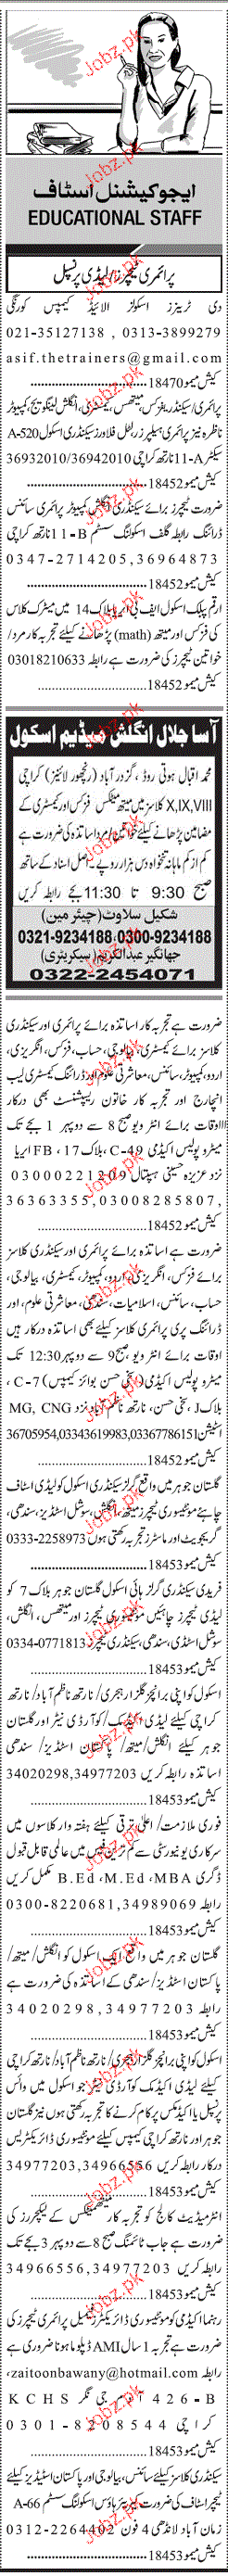 ایجوکیشنل اسٹاف
EDUCATIONAL STAFF
پرائمری ٹیچرز/لیڈی پرنسپل
دی ٹرینرز اسکولز الائیڈ کیمپس کورنگی
021-35127138 , 0313-3899279
asif.thetrainers@gmail.com
کیش میمو18470
پرائمری/سیکنڈری فزکس، میتھس، کیمسٹری، انگلش لینگویج، کمپیوٹر
ناظرہ نیز پرائمری ہیلپرز رائل فلاورز سیکنڈری اسکول A-520
سیکٹر 11-A نارتھ کراچی 36932010/36942010
کیش میمو18452
ضرورت ٹیچرز برائے سیکنڈری انگلش کمپیوٹر پرائمری سائنس
ڈرائنگ رابطہ گلف اسکولنگ سسٹم 11-B نارتھ کراچی
0347-2714205,36964873
کیش میمو18452
ارقم پبلک اسکول ایف بی ایریا بلاک 14 میں میٹرک کلاس
کی فزکس اور میتھ (math) پڑھانے کیلئے تجربہ کار مرد/
خواتین ٹیچرز کی ضرورت ہے رابطہ 03018210633
کیش میمو18452
آسا جلال انگلش میڈیم اسکول
محمد اقبال ہوتی روڈ، گزدرآباد (رنچھوڑ لائنز) کراچی
X,IX,VIII کلاسز میں میتھ میٹکس فزکس اور کیمسٹری کے
مضامین پڑھانے کیلئے خواتین اور مرد اساتذہ کی ضرورت ہے
کم از کم ماہانہ تنخواہ دس ہزار روپے۔ اصل اسناد کے ساتھ
صبح 9:30 تا 11:30 بجے رابطہ کریں
شکیل سلاوٹ (چیئرمین)
0321-9234188,0300-9234188
جهانگیر عبدالکریم (سیکریٹری)
0322-2454071
ضرورت ہے تجربہ کار اساتذہ برائے پرائمری اور سیکنڈری
کلاسز برائے کیمسٹری، بیالوجی، حساب، فزکس، انگریزی،
اردو، کمپیوٹر، سائنس، معاشرتی علوم اور ڈرائنگ کیمسٹری لیب
انچارج اور تجربہ کار خاتون ریسپشنسٹ بھی درکار
اوقات برائے انٹرویو صبح 8 سے دوپہر 1 بجے تک
میٹروپولیس اکیڈمی C-49، بلاک 17، FB ایریا
نزد عزیزہ حسینی ہسپتال
36363355,03008285807,
کیش میمو18452
ضرورت ہے اساتذہ برائے پرائمری اور سیکنڈری کلاسز
برائے فزکس، انگریزی، اردو، کمپیوٹر، کیمسٹری، بیالوجی،
حساب، سائنس، اسلامیات، سندھی، معاشرتی علوم، اور
ڈرائنگ پری پرائمری کلاسز کیلئے بھی اساتذہ درکار ہیں
اوقات برائے انٹرویو صبح 9 سے دوپہر 12:30 تک
میٹروپولیس اکیڈمی (سخی حسن بوائز کیمپس) C-7،
بلاک J، سخی حسن، نارتھ ناظم آباد نزد MG, CNG
اسٹیشن 36705954,03343619983,03367786151
کیش میمو18452
گلستان جوہر میں واقع گرلز سیکنڈری اسکول کو لیڈی اسٹاف
چاہئے مونٹیسوری ٹیچرز، میتھ، انگلش، سوشل اسٹڈیز، سندھی،
گریجویٹ اور ماسٹرز تجربہ رکھتی ہوں 0333-2258973
کیش میمو18453
فریدی سیکنڈری گرلز ہائی اسکول گلستان جوہر بلاک 7 کو
لیڈی ٹیچرز چاہئیں مونٹیسوری ٹیچرز اور میتھس، انگلش،
سوشل اسٹڈی، سندھی، سیکنڈری ٹیچرز 0334-0771813
کیش میمو18453
اسکول کو اپنی برانچز گلزار ہجری/ نارتھ ناظم آباد/ نارتھ
کراچی کیلئے لیڈی اکیڈمک/کوآرڈی نیٹر اور گلستان
جوہر کے لئے انگلش/میتھ/ پاکستان اسٹڈیز/ سندھی
اساتذہ رابطہ کریں 34020298,34977203
کیش میمو18453
فوری ملازمت/ اعلیٰ ترقی کیلئے ہفتہ وار کلاسوں میں
سرکاری یونیورسٹی سے کم ترین فیس میں عالمی قابل قبول
ڈگری B.Ed ،M.Ed ،MBA مکمل کریں
رابطہ 0300-8220681,34989069
کیش میمو18453
گلستان جوہر میں واقع ایک اسکول کو انگلش/میتھ/
پاکستان اسٹڈیز/سندھی کے اساتذہ کی ضرورت ہے
رابطہ 34020298,34977203
کیش میمو18453
اسکول کو اپنی برانچز گلزار ہجری/ نارتھ ناظم آباد/ نارتھ کراچی
کیلئے لیڈی اکیڈمک کوآرڈی نیٹر جو اسکول میں وائس
پرنسپل یا اکیڈمکس پر کام کرنے کا تجربہ رکھتی ہوں نیز گلستان
جوہر اور نارتھ کراچی کیمپس کیلئے مونٹیسوری ڈائریکٹریس
درکار رابطہ کریں 34977203,34966556
کیش میمو18453
انٹرمیڈیٹ کالج کو تجربہ کار میتھمیٹکس کے لیکچررز کی
ضرورت ہے جاب ٹائمنگ صبح 8 سے دوپہر 3 بجے تک
رابطہ کریں 34966556,34977203
کیش میمو18453
رہنما اکیڈمی کو مونٹیسوری ڈائریکٹرز فیمیل پرائمری ٹیچرز کی
ضرورت ہے تجربہ 1 سال AMI ڈپلوما ہونا ضروری ہے
رابطہ zaitoonbawany@hotmail.com،
B-426 آدم جی نگر KCHS
کراچی 0301-8208544
کیش میمو18453
سیکنڈری کلاسز کیلئے سائنس، بیالوجی اور پاکستان اسٹیڈیز کیلئے
ٹیچر اسٹاف کی ضرورت کیریئر ہاؤس اسکولنگ سسٹم A-66
زمان آباد لانڈھی 4 فون 0312-2264407
کیش میمو18453